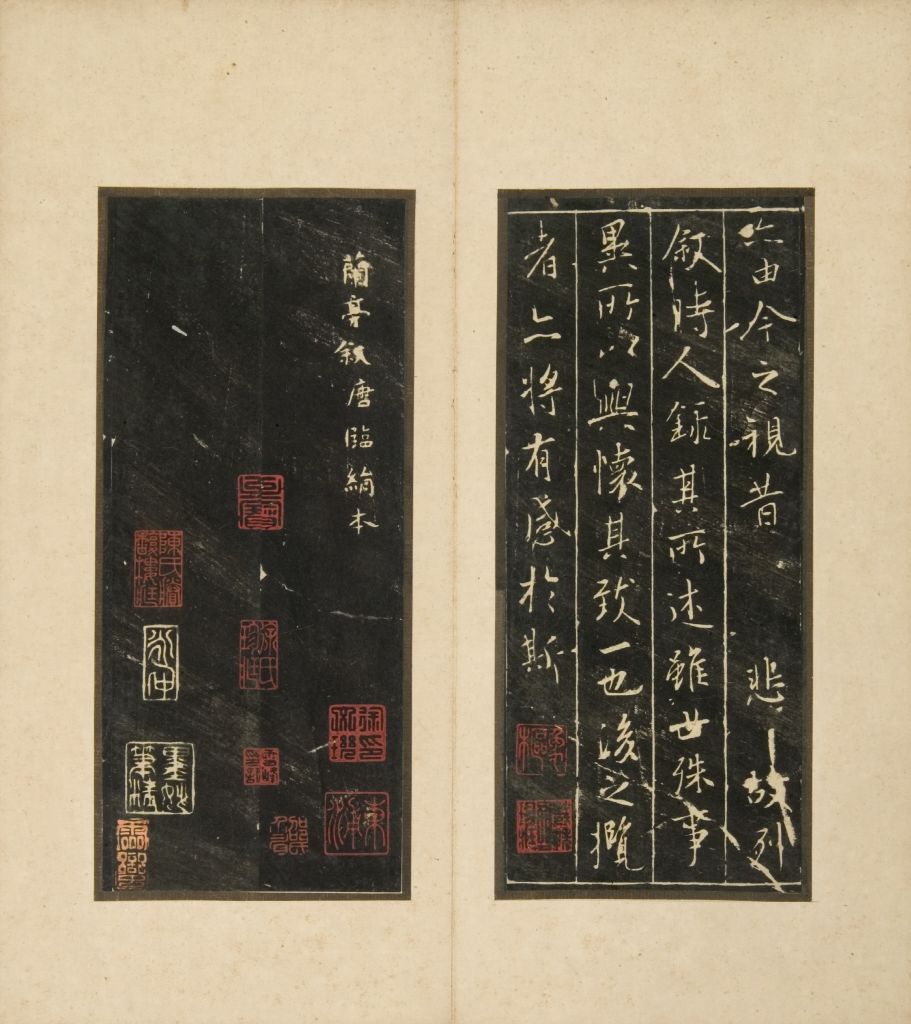 亦由今之視昔　悲　故列
叙時人錄其所述雖世殊事
異所以興懷其致一也後之攬
者亦將有感於斯
蘭亭叙唐臨絹本
墨妙筆精